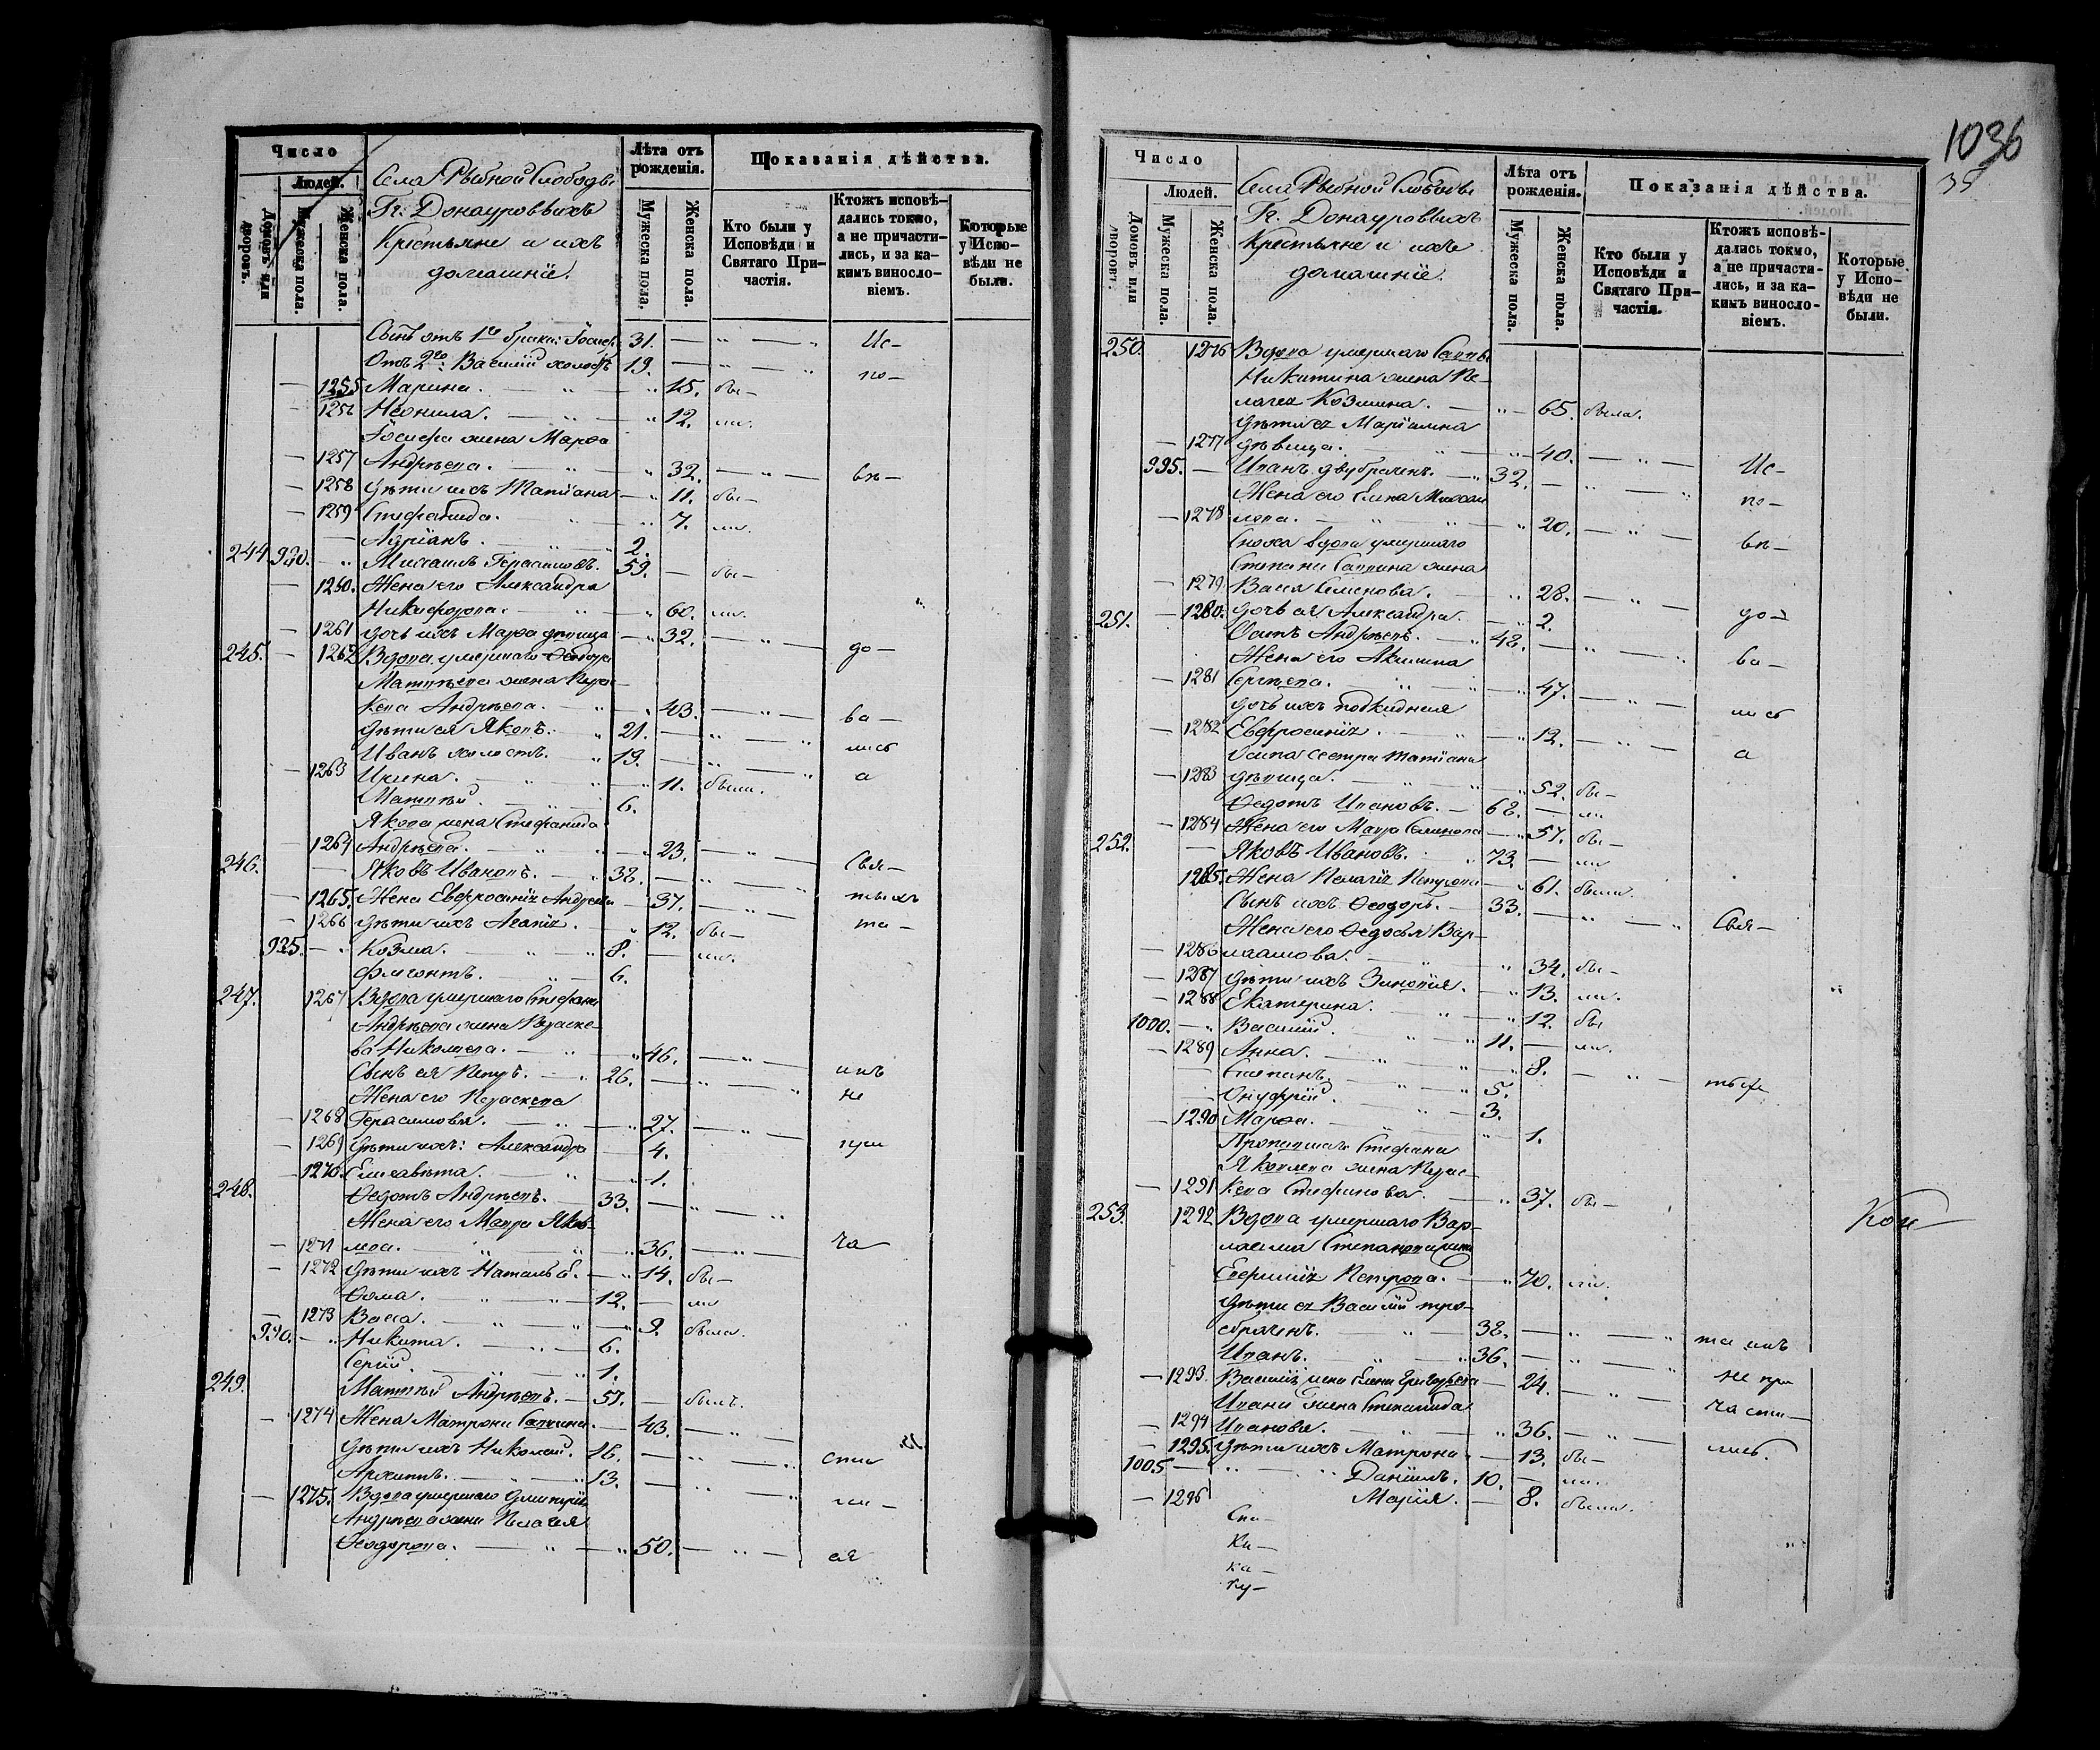 Число
Людей.
Домовъ или дворовъ.
Мужеска пола.
Женска пола.
Села Рыбной Слободы
Гг. Донауровыхъ
Крестьяне и ихъ
домашніе.
Лѣта отъ рожденія.
Мужеска пола.
Женска пола.
Показанія дѣйства.
Кто были у Исповѣди и Святаго Причастія.
Ктожъ исповѣдались токмо, а не причастились, и за какимъ винословіемъ.
Которые у Исповѣди не были.
Сынъ отъ 1го брака: Іосифъ 31. — " — " Ис–
Отъ 2го: Василій холостъ 19. — " — " по–
— 1255 Марина. — " — " 15. бы–
— 1256 Неонила. — " — " 12. ли.
Іосифа жена Марѳа
— 1257 Андрѣева. — " — " 32. — " — вѣ–
— 1258 Дѣти ихъ Татіана — " 11. бы–
— 1259 Стефанида. " " 7. ли.
— Адріанъ. — " — " 2.
244 930. — " Михаилъ Герасимовъ. 59. — бы–
— 1260. Жена его Александра
Никифорова. — " — " 60. ли.
— 1261 Дочь ихъ Марѳа дѣвица — " 32. — " — до–
245. — 1262 Вдова умершаго Ѳеодора
Матвѣева жена Парас–
кева Андрѣева. — " — " 43. — " — ва–
Дѣти ея Яковъ. — " 21. — " — " лись
Иванъ холостъ. — " 19. — " — " а
— 1263 Ирина. — " — " 11. были.
Матвѣй. — " — 6.
Якова жена Стефанида
— 1264 Андрѣева. — " — " 23. — " —
246. — Яковъ Ивановъ. — " 38. — " — " Свя–
— 1265. Жена Евфросинія Андреева — 37. — " — тыхъ
— 1266 Дѣти ихъ Агапія. — " 12. бы– та–
935. — " Козма. — " — " 8. — ли.
Флегонтъ. " — 6.
247. 1267 Вдова умершаго Стефана
Андрѣева жена Параске–
ва Николаева. — " — " 46. — " —
Сынъ ея Петръ. — " 26. — " — " инъ
Жена его Параскева не
— 1268 Герасимова. — " — " 27. — " —
— 1269 Дѣти ихъ: Александра — 4. при
— 1270. Елисавета. — " — " 1.
248. Ѳедотъ Андрѣевъ. — 33. — " — "
Жена его Мавра Яков–
— 1271 лева. " " " 36. — " — ча
— 1272 Дѣти ихъ Наталья. — " 14. бы–
Ѳома. — " — " — 12. — ли
— 1273 Васса. — " " — " 9. была.
990. — " Никита. — " — 6.
Сергій. — " — 1.
249. Матвѣй Андрѣевъ. — 51. — былъ.
— 1274 Жена Матрона Саввина. — 43. — " —
Дѣти ихъ Николай. 16. — " — " сти
Архипъ. — " — " 13. — " — "
— 1275. Вдова умершаго Дмитрія ли–
Андрѣева жена Пелагея
Ѳеодорова. — " — " 50. — " — ся

1036
35
Число
Людей.
Домовъ или дворовъ.
Мужеска пола.
Женска пола.
Села Рыбной Слободы
Гг. Донауровыхъ
Крестьяне и ихъ
домашніе.
Лѣта отъ рожденія.
Мужеска пола.
Женска пола.
Показанія дѣйства.
Кто были у Исповѣди и Святаго Причастія.
Ктожъ исповѣдались токмо, а не причастились, и за какимъ винословіемъ.
Которые у Исповѣди не были.
250. 1276 Вдова умершаго Саввы
Никитина жена Пе–
лагея Козмина. — " — 65. была.
Дѣти ея Маріамна
— 1277 дѣвица. — " — " 40. — " — Ис–
995. — Иванъ двубраченъ. — " 32. — " — "
Жена его Елена Михаи по–
— 1278 лова. — " " — " 20. — " —
Сноха вдова умершаго вѣ–
Степана Саввина жена
— 1279 Васса Семенова. — " 28. — " —
251. — 1280. Дочь ея Александра. — 2. до–
Осипъ Андрѣевъ. — " 48. — " — "
Жена его Акилина ва–
— 1281 Сергѣева. — " " — " 47. — " —
Дочь ихъ подкидная лись
— 1282 Евфросинія. — " — " 12. — " — а
Осипа сестра Татіана
— 1283 дѣвица. — " — " 52. бы–
Ѳедотъ Ивановъ. — 68. — ли
— 1284 Жена его Мавра Семенова — " 57. бы–
252. — Яковъ Ивановъ. — " 73. — ли
1285. Жена Пелагія Петрова — " 61. были.
Сынъ ихъ Ѳеодоръ. — 33. — " — " Свя–
Жена его Ѳедосья Вар–
— 1286 лаамова. — " 34. бы–
— 1287 Дѣти ихъ Зиновія. — " 13. ли.
— 1288 Екатерина. — " — " 12. бы
1000. — " Василій. — " — " 11. — ли.
— 1289 Анна. — " — " 8. — " — тыхъ
— Степанъ. — " " 5.
— Онуфрій. — " — 3.
— 1290 Марѳа. — " — " 1.
Пропавшаго Стефана
Яковлева жена Парас–
— 1291 кева Стефанова. — " 37. бы–
253. 1292 Вдова умершаго Вар–
лаама Степанова жена
Евфимія Петрова. — " 70. ли.
Дѣти ея Василій тро–
ебраченъ. — " — 38. — " — " та инъ
Иванъ. — " " 36. — " — "
— 1293. Василія жена Елена Григорьева — 24. — " — не при
Ивана жена Степанида
— 1294 Иванова. — " " 36. — " — части–
— 1295. Дѣти ихъ Матрона — 13. бы– лись.
1005 — " — " Даніилъ. 10. — ли.
— 1296 Марія. — 8. была.